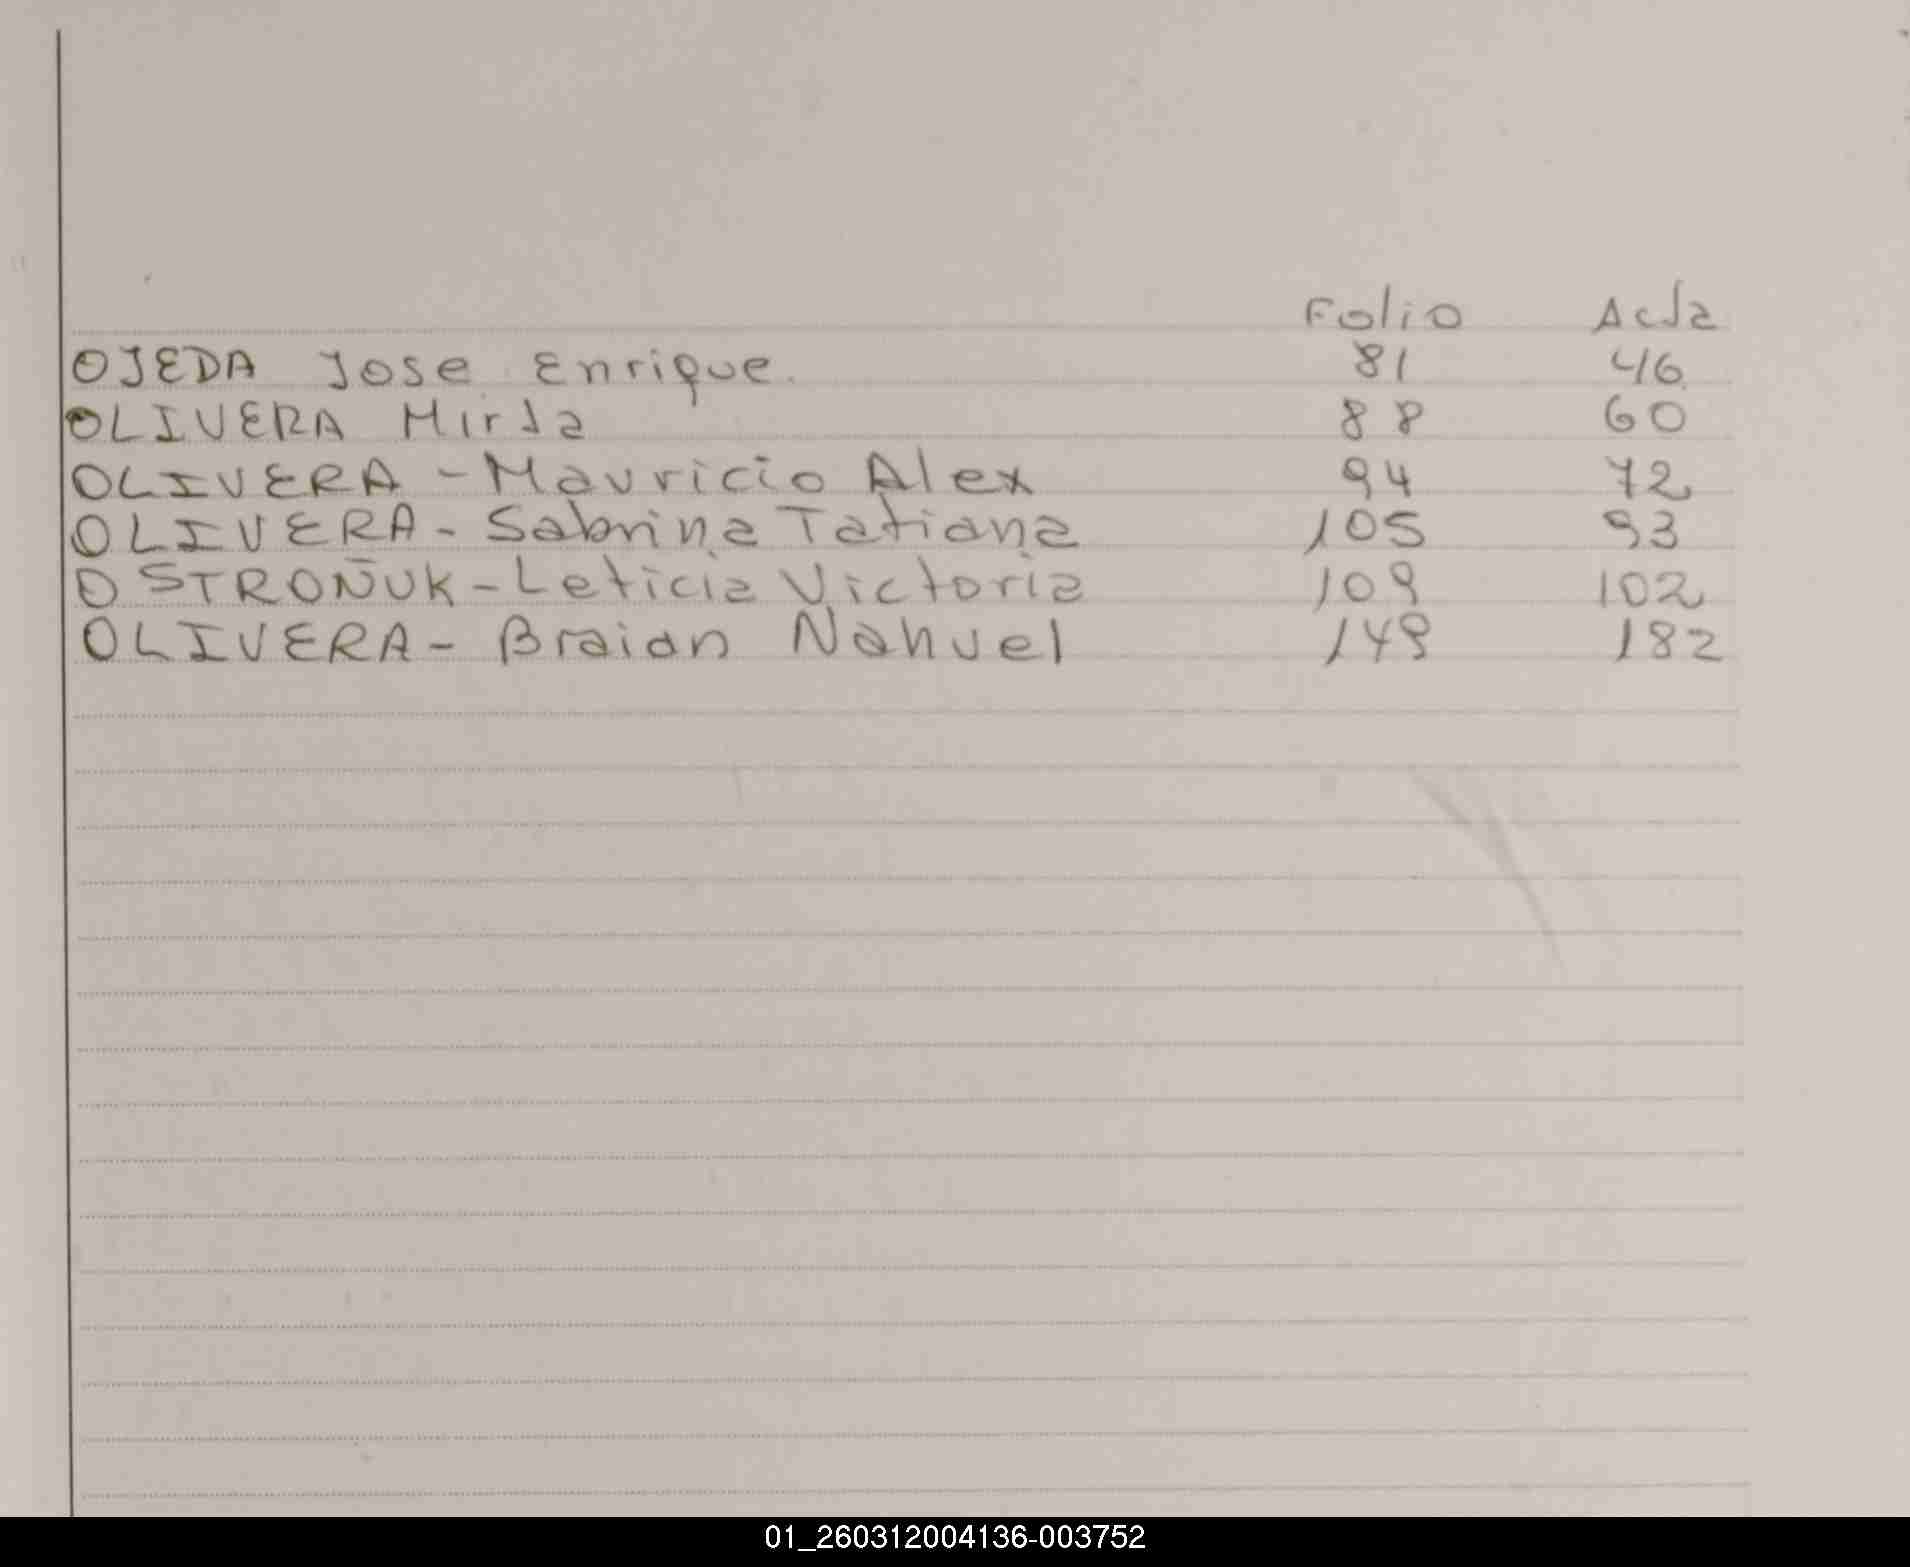 Folio Acta
OJEDA Jose Enrique. 81 46
OLIVERA Mirta 88 60
OLIVERA - Mauricio Alex 94 72
OLIVERA - Sabrina Tatiana 105 93
OSTROÑUK - Leticia Victoria 109 102
OLIVERA - Braian Nahuel 149 182
01_260312004136-003752